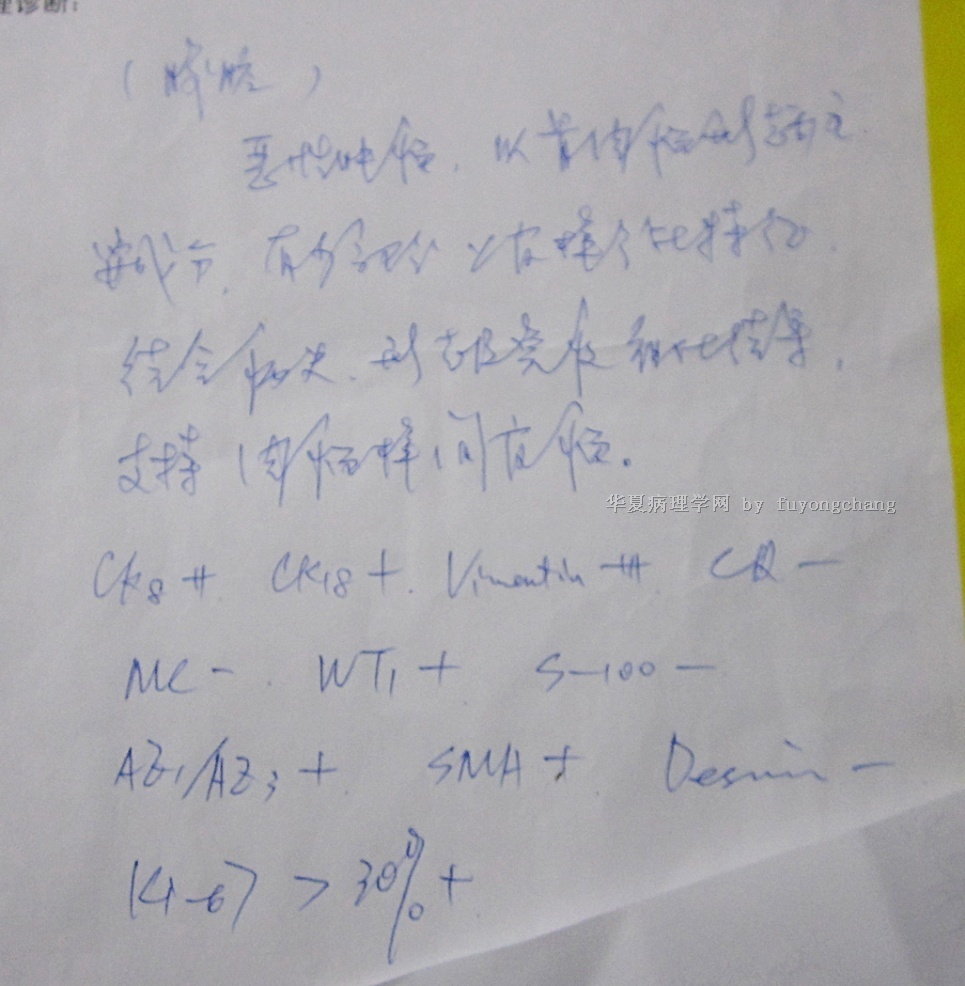 理诊断:
(腹腔)
恶性肿瘤,以肉瘤形态为主
要成分,有少部分上皮样分化特征.
结合病史、形态及免疫组化结果,
支持肉瘤样间皮瘤.
华夏病理学网 by fuyongchang
CK8 ++ CK18 +. Vimentin +++ CR -
MC - . WT1 + S-100 -
AE1/AE3 +. SMA +. Desmin -
Ki-67 > 30% +